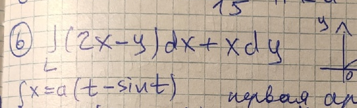 15
⑥ ∫(2x-y)dx+xdy
L
{x=a(t-sint) первая
y
0